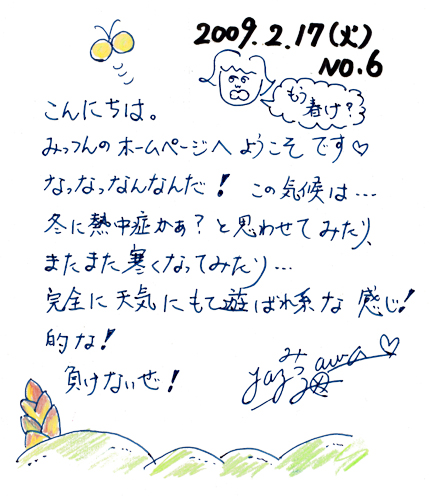 2009.2.17(火)
NO.6
もう
春け?
こんにちは。
みっつんのホームページへようこそです♡
なっなっなんなんだ！この気候は…
冬に熱中症かぁ？と思わせてみたり、
またまた寒くなってみたり…
完全に天気にもて遊ばれ系な感じ！
的な！
負けないぜ！